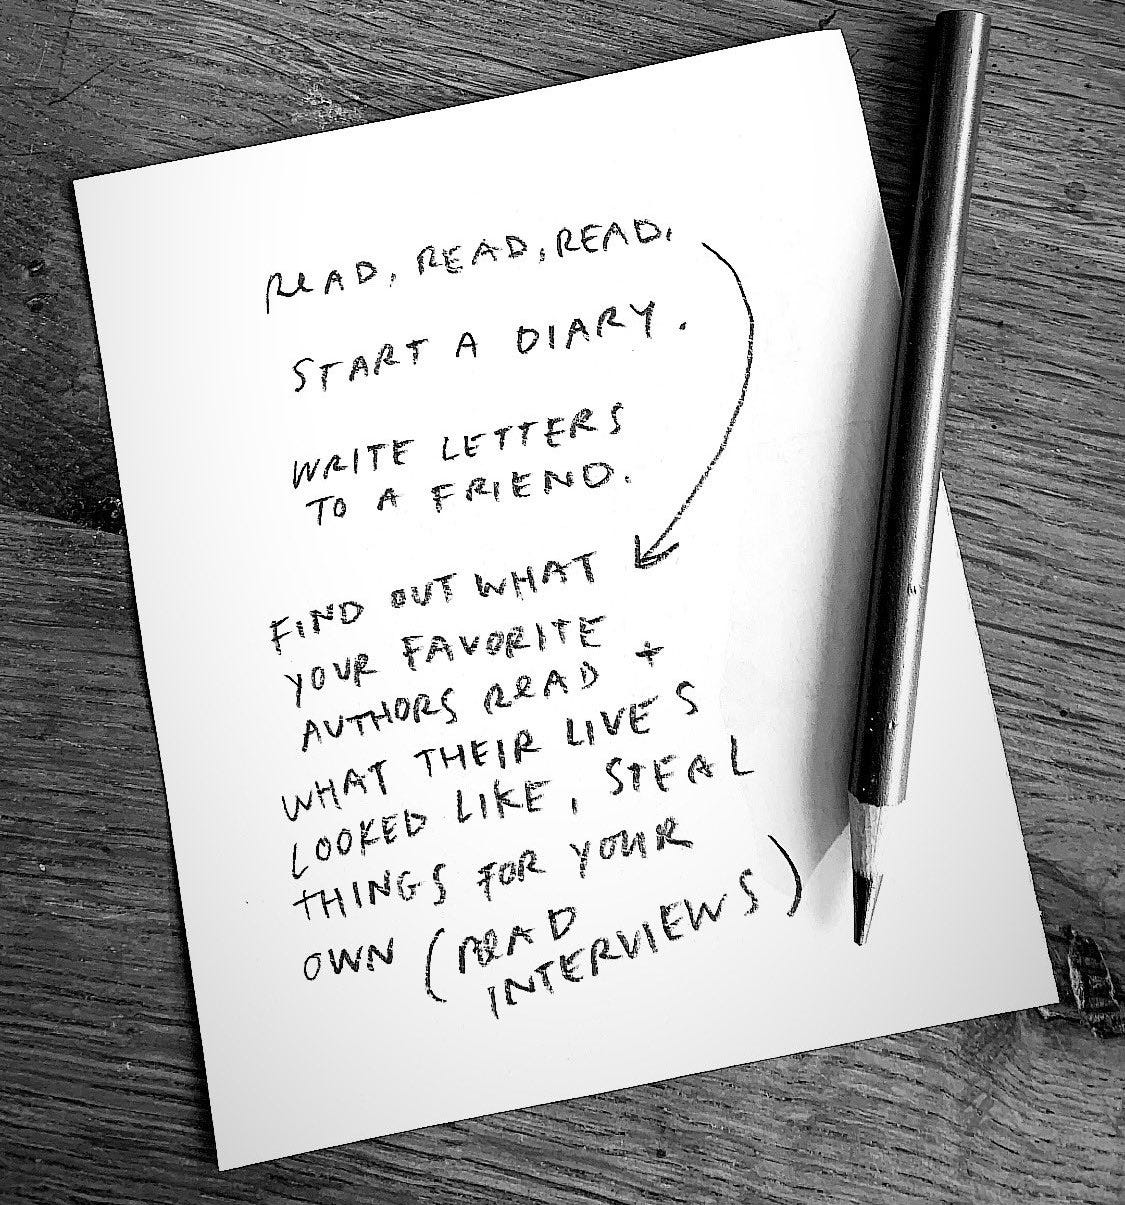 READ, READ, READ.
START A DIARY.
WRITE LETTERS
TO A FRIEND.
FIND OUT WHAT
YOUR FAVORITE
AUTHORS READ +
WHAT THEIR LIVES
LOOKED LIKE, STEAL
THINGS FOR YOUR
OWN (READ
INTERVIEWS)